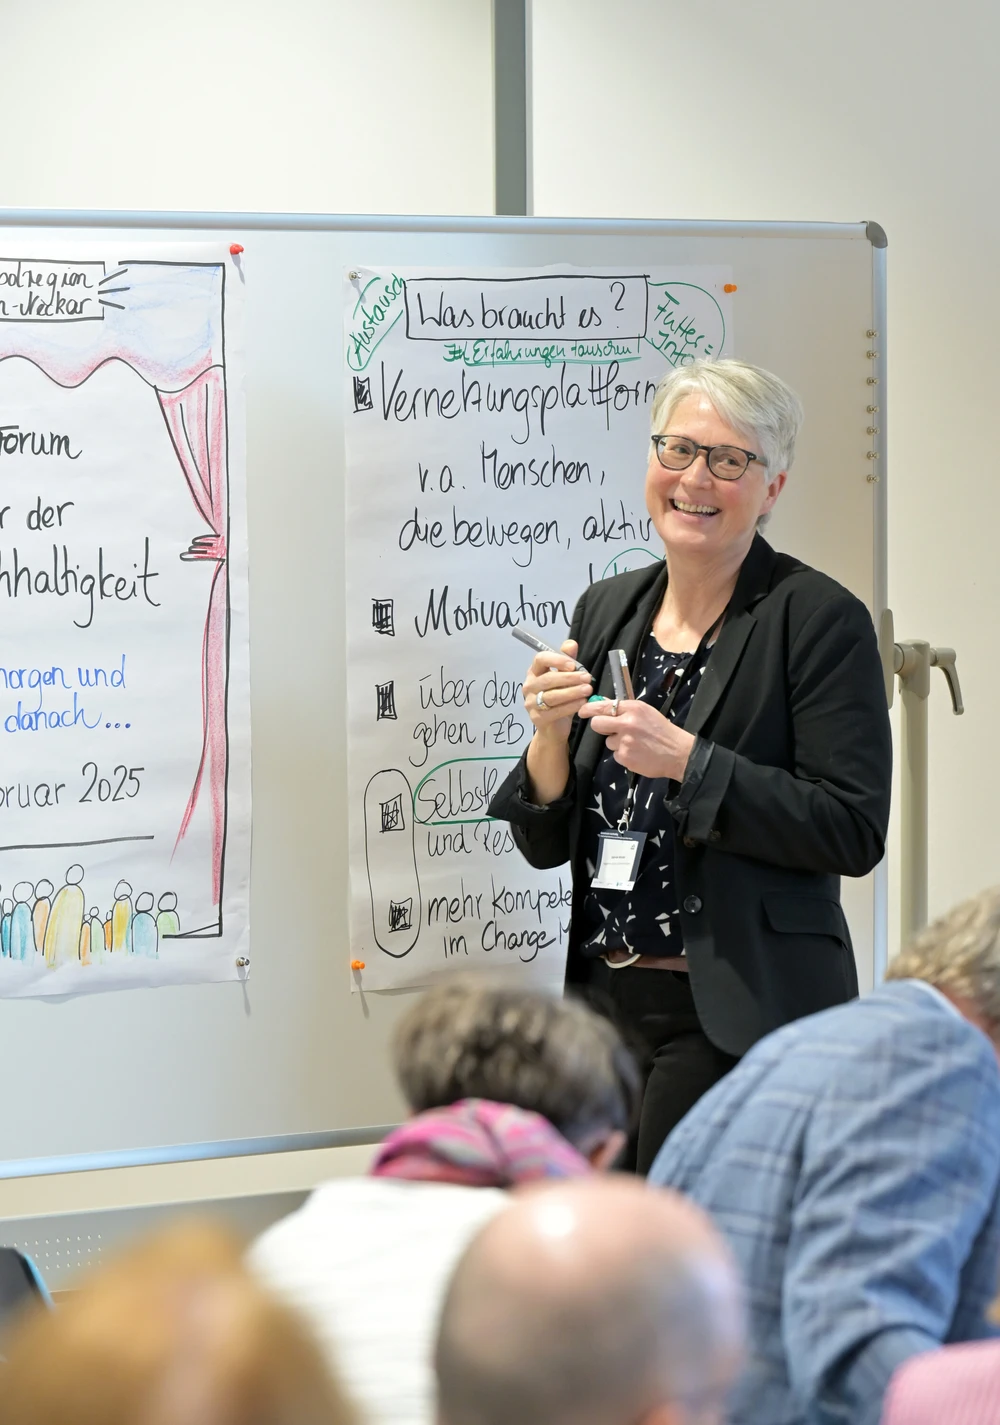 n-Neckar
Forum
r der
hhaltigkeit
orgen und
danach...
ruar 2025
Austausch
Was braucht es?
Futter =
Info
Erfahrungen tauschen
Vernetzungsplattform
v.a. Menschen,
die bewegen, aktiv
Motivation
über den
gehen, zB
Selbst
und Res
mehr Kompete
im Change